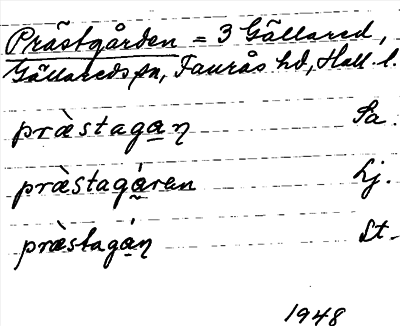 Prästgården = 3 Gällared,
Gällareds sn, Faurås hd, Hall. l.
præ̀stagan̥ Sa.
præ̀stagáran Lj.
præ̀stagán̥ St.
1948